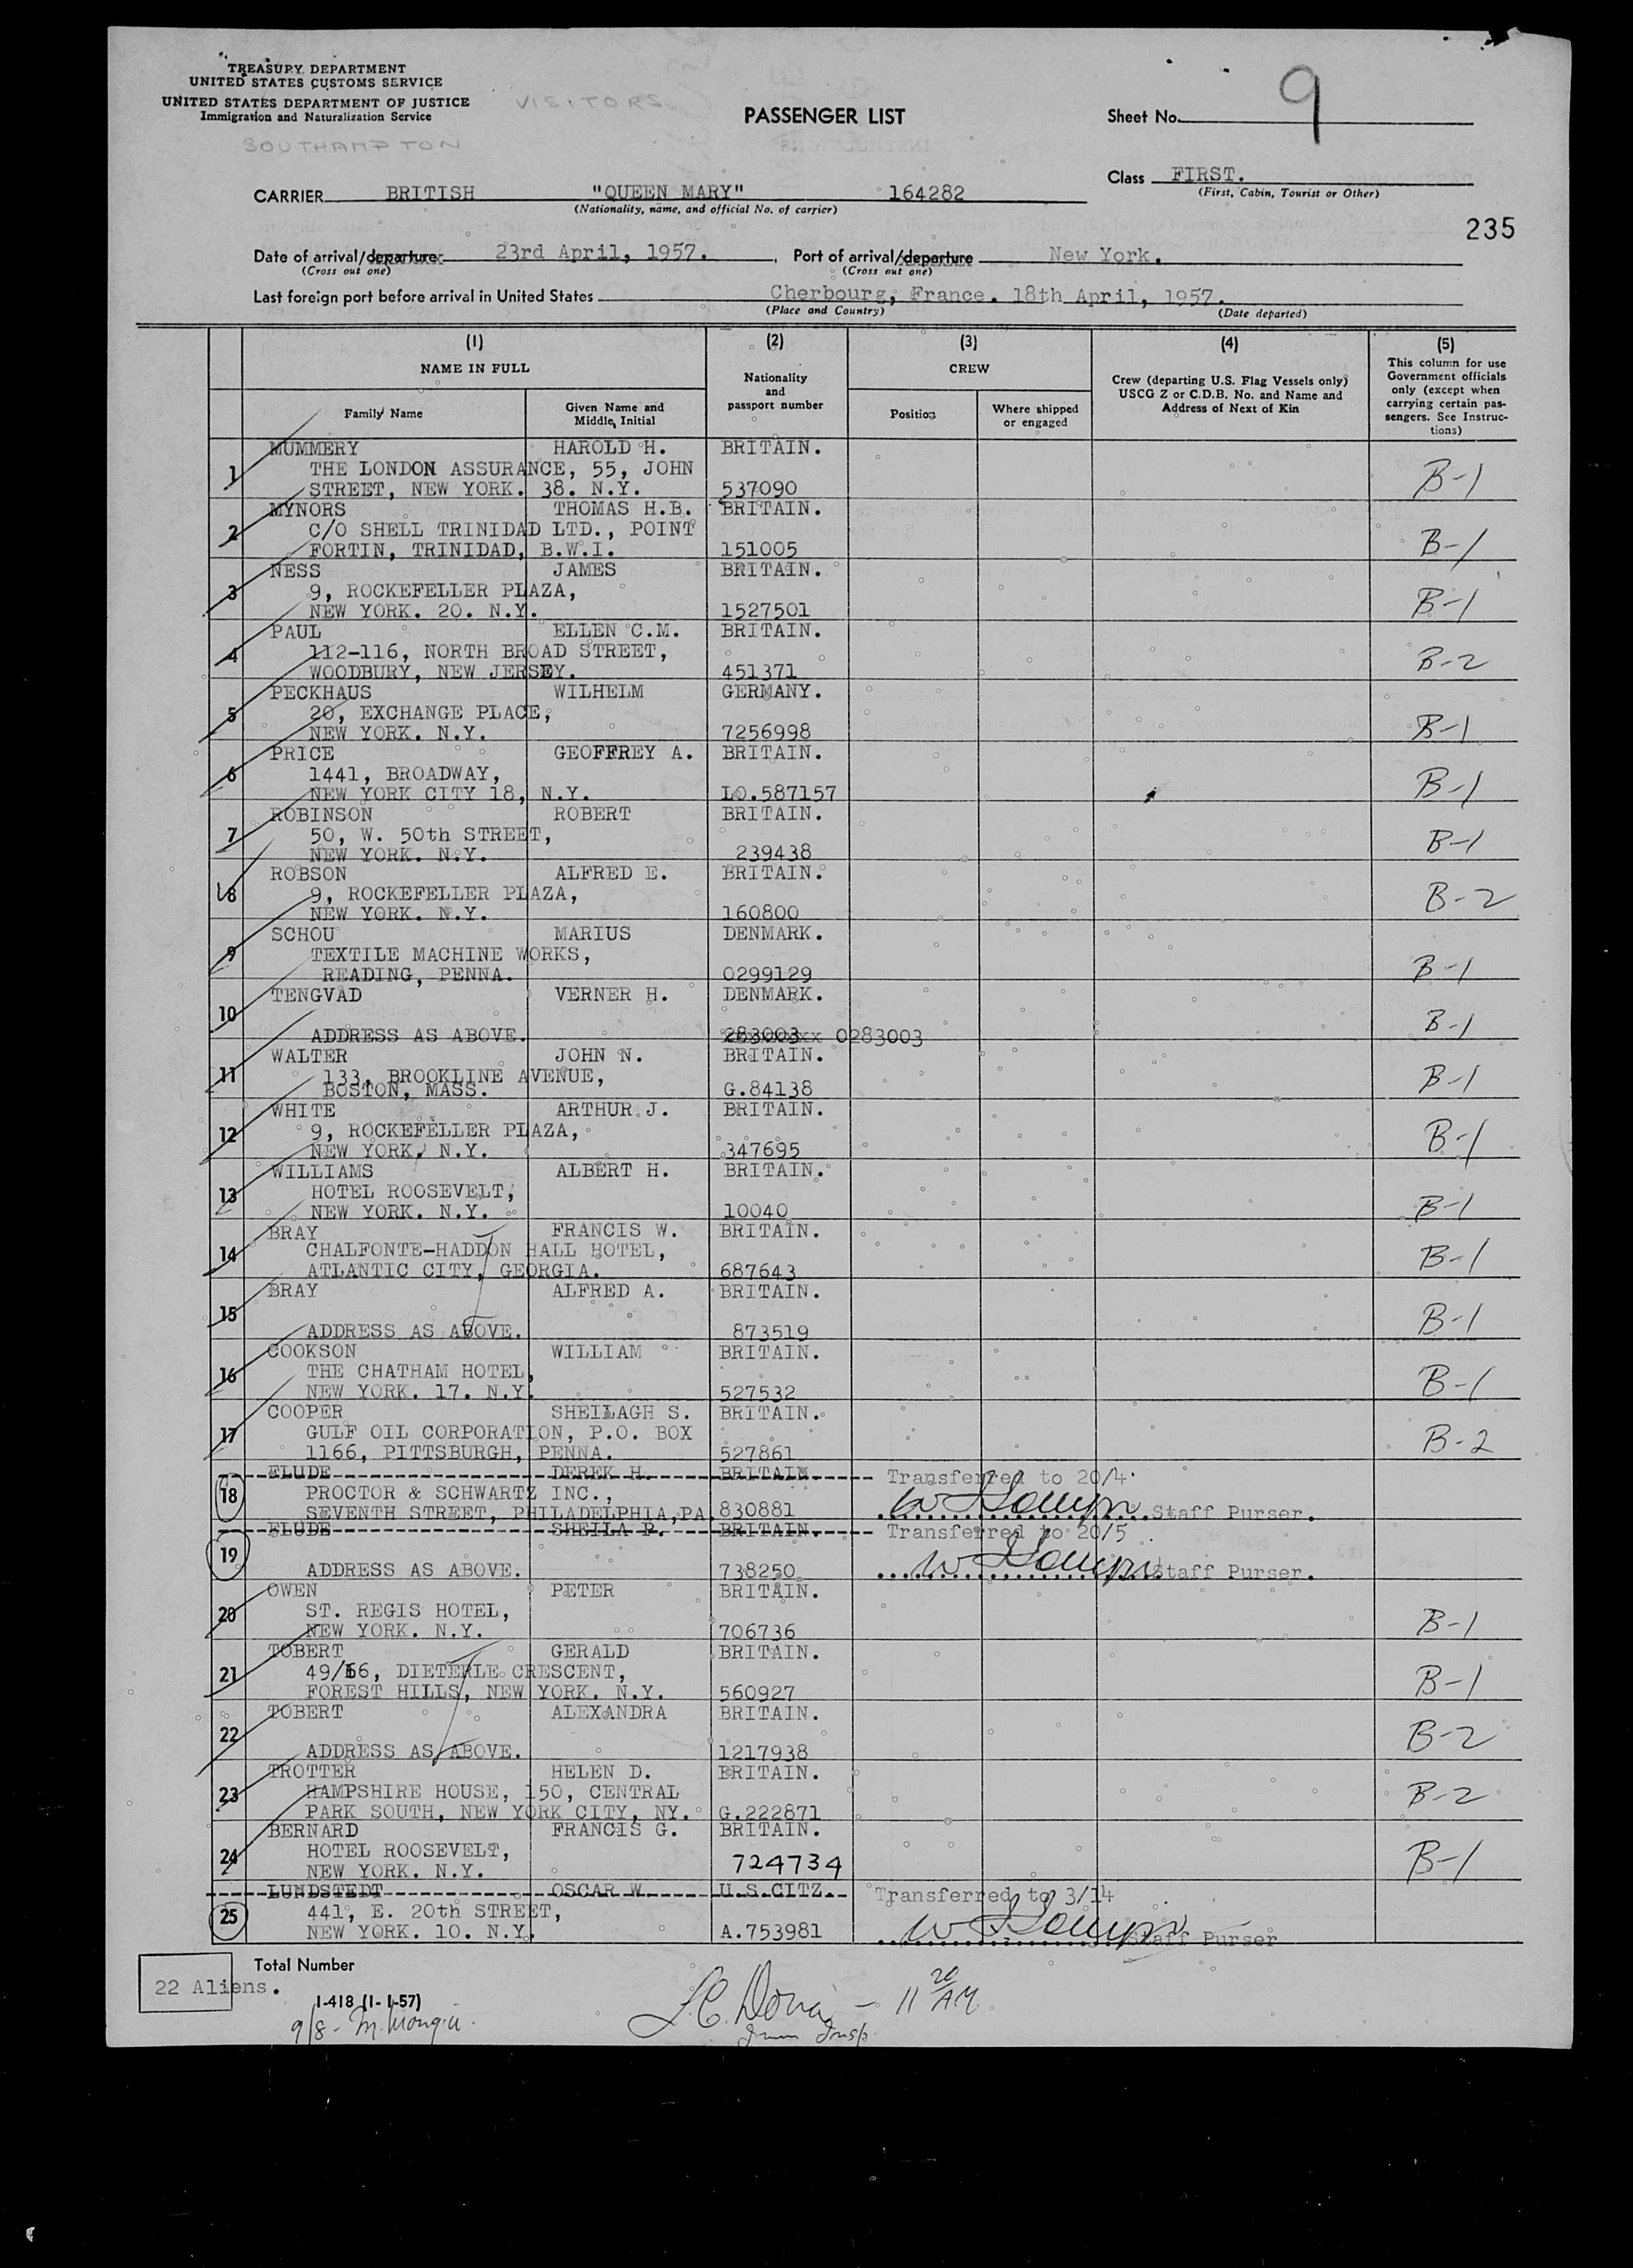 TREASURY DEPARTMENT
UNITED STATES CUSTOMS SERVICE
UNITED STATES DEPARTMENT OF JUSTICE
Immigration and Naturalization Service
VISITORS
SOUTHAMPTON
PASSENGER LIST
Sheet No. 9
Class FIRST.
(First, Cabin, Tourist or Other)
CARRIER BRITISH "QUEEN MARY" 164282
(Nationality, name, and official No. of carrier)
235
Date of arrival/departure 23rd April, 1957. Port of arrival/departure New York.
(Cross out one) (Cross out one)
Last foreign port before arrival in United States Cherbourg, France. 18th April, 1957.
(Place and Country) (Date departed)
(1) (2) (3) (4) (5)
NAME IN FULL
Family Name
Given Name and Middle Initial
Nationality and passport number
CREW
Position
Where shipped or engaged
Crew (departing U.S. Flag Vessels only) USCG Z or C.D.B. No. and Name and Address of Next of Kin
This column for use Government officials only (except when carrying certain passengers. See Instructions)
1 MUMMERY HAROLD H. BRITAIN.
THE LONDON ASSURANCE, 55, JOHN B-1
STREET, NEW YORK. 38. N.Y. 537090
2 MYNORS THOMAS H.B. BRITAIN.
C/O SHELL TRINIDAD LTD., POINT B-1
FORTIN, TRINIDAD, B.W.I. 151005
3 NESS JAMES BRITAIN.
9, ROCKEFELLER PLAZA, B-1
NEW YORK. 20. N.Y. 1527501
4 PAUL ELLEN C.M. BRITAIN.
112-116, NORTH BROAD STREET, B-2
WOODBURY, NEW JERSEY. 451371
5 PECKHAUS WILHELM GERMANY.
20, EXCHANGE PLACE, B-1
NEW YORK. N.Y. 7256998
6 PRICE GEOFFREY A. BRITAIN.
1441, BROADWAY, B-1
NEW YORK CITY 18, N.Y. LO.587157
7 ROBINSON ROBERT BRITAIN.
50, W. 50th STREET, B-1
NEW YORK. N.Y. 239438
8 ROBSON ALFRED E. BRITAIN.
9, ROCKEFELLER PLAZA, B-2
NEW YORK. N.Y. 160800
9 SCHOU MARIUS DENMARK.
TEXTILE MACHINE WORKS, B-1
READING, PENNA. 0299129
10 TENGVAD VERNER H. DENMARK.
ADDRESS AS ABOVE. 283003xx 0283003 B-1
11 WALTER JOHN N. BRITAIN.
133, BROOKLINE AVENUE, B-1
BOSTON, MASS. G.84138
12 WHITE ARTHUR J. BRITAIN.
9, ROCKEFELLER PLAZA, B-1
NEW YORK, N.Y. 347695
13 WILLIAMS ALBERT H. BRITAIN.
HOTEL ROOSEVELT, B-1
NEW YORK. N.Y. 10040
14 BRAY FRANCIS W. BRITAIN.
CHALFONTE-HADDON HALL HOTEL, B-1
ATLANTIC CITY, GEORGIA. 687643
15 BRAY ALFRED A. BRITAIN.
ADDRESS AS ABOVE. 873519 B-1
16 COOKSON WILLIAM BRITAIN.
THE CHATHAM HOTEL, B-1
NEW YORK. 17. N.Y. 527532
17 COOPER SHEILAGH S. BRITAIN.
GULF OIL CORPORATION, P.O. BOX B-2
1166, PITTSBURGH, PENNA. 527861
18 ELUDE DEREK H. BRITAIN. Transferred to 20/4.
PROCTOR & SCHWARTZ INC.,
SEVENTH STREET, PHILADELPHIA, PA. 830881 Staff Purser.
19 ELUDE SHEILA P. BRITAIN. Transferred to 20/5
ADDRESS AS ABOVE. 738250 Staff Purser.
20 OWEN PETER BRITAIN.
ST. REGIS HOTEL, B-1
NEW YORK. N.Y. 706736
21 TOBERT GERALD BRITAIN.
49/66, DIETERLE CRESCENT, B-1
FOREST HILLS, NEW YORK. N.Y. 560927
22 TOBERT ALEXANDRA BRITAIN.
ADDRESS AS ABOVE. 1217938 B-2
23 TROTTER HELEN D. BRITAIN.
HAMPSHIRE HOUSE, 150, CENTRAL B-2
PARK SOUTH, NEW YORK CITY, NY. G.222871
24 BERNARD FRANCIS G. BRITAIN.
HOTEL ROOSEVELT, B-1
NEW YORK. N.Y. 724734
25 LUNDSTEDT OSCAR W. U.S.CITZ. Transferred to 3/14
441, E. 20th STREET,
NEW YORK. 10. N.Y. A.753981 Staff Purser
Total Number
22 Aliens.
I-418 (1-1-57)
9/8 - M.
11 20 AM
Imm Insp.